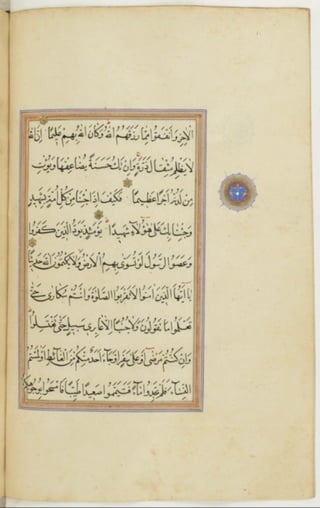 الْاٰخِرِ وَاَنْفَقُوا مِمَّا رَزَقَهُمُ اللّٰهُ وَكَانَ اللّٰهُ بِهِمْ عَلِيمًا اِنَّ اللّٰهَ
لَا يَظْلِمُ مِثْقَالَ ذَرَّةٍ وَاِنْ تَكُ حَسَنَةً يُضَاعِفْهَا وَيُؤْتِ
مِنْ لَدُنْهُ اَجْرًا عَظِيمًا فَكَيْفَ اِذَا جِئْنَا مِنْ كُلِّ اُمَّةٍ بِشَهِيدٍ
وَجِئْنَا بِكَ عَلٰى هٰؤُلَاءِ شَهِيدًا يَوْمَئِذٍ يَوَدُّ الَّذِينَ كَفَرُوا
وَعَصَوُا الرَّسُولَ لَوْ تُسَوّٰى بِهِمُ الْاَرْضُ وَلَا يَكْتُمُونَ اللّٰهَ حَدِيثًا
يَا اَيُّهَا الَّذِينَ اٰمَنُوا لَا تَقْرَبُوا الصَّلٰوةَ وَاَنْتُمْ سُكَارٰى حَتّٰى
تَعْلَمُوا مَا تَقُولُونَ وَلَا جُنُبًا اِلَّا عَابِرِى سَبِيلٍ حَتّٰى تَغْتَسِلُوا
وَاِنْ كُنْتُمْ مَرْضٰى اَوْ عَلٰى سَفَرٍ اَوْ جَاءَ اَحَدٌ مِنْكُمْ مِنَ الْغَائِطِ اَوْ لٰمَسْتُمُ
النِّسَاءَ فَلَمْ تَجِدُوا مَاءً فَتَيَمَّمُوا صَعِيدًا طَيِّبًا فَامْسَحُوا بِوُجُوهِكُمْ